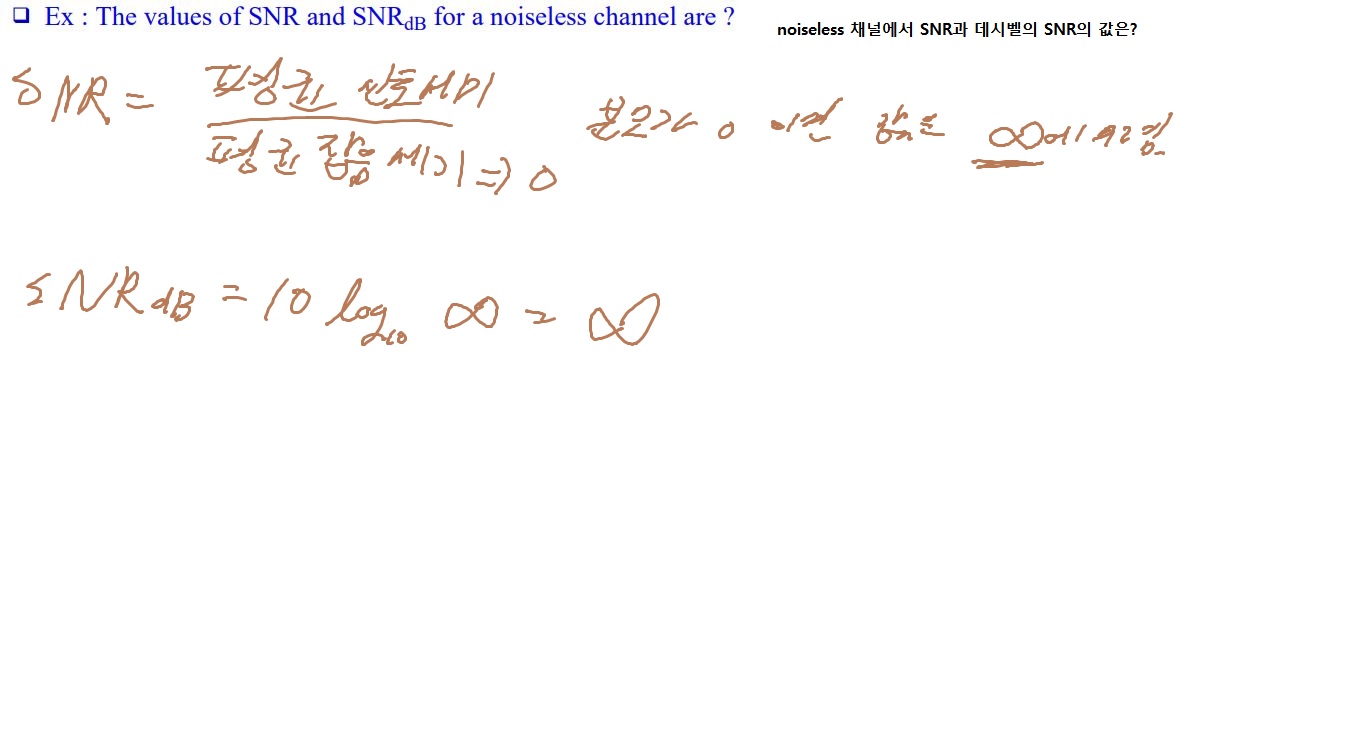 ❑ Ex : The values of SNR and SNRdB for a noiseless channel are ?
noiseless 채널에서 SNR과 데시벨의 SNR의 값은?
SNR = 평균 신호세기 / 평균 잡음세기 ⇒ 0
분모가 0 이면 값은 ∞에
SNR dB = 10 log10 ∞ = ∞